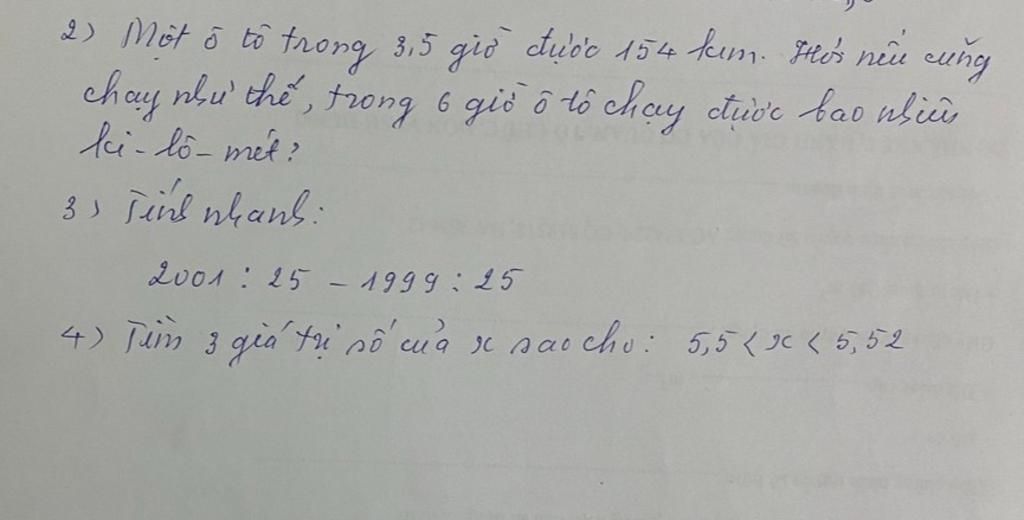 2) Một ô tô trong 3,5 giờ được 154 km. Hỏi nếu cũng
chạy như thế, trong 6 giờ ô tô chạy được bao nhiêu
ki-lô-mét?
3) Tính nhanh:
2001 : 25 - 1999 : 25
4) Tìm 3 giá trị số của x sao cho: 5,5 < x < 5,52